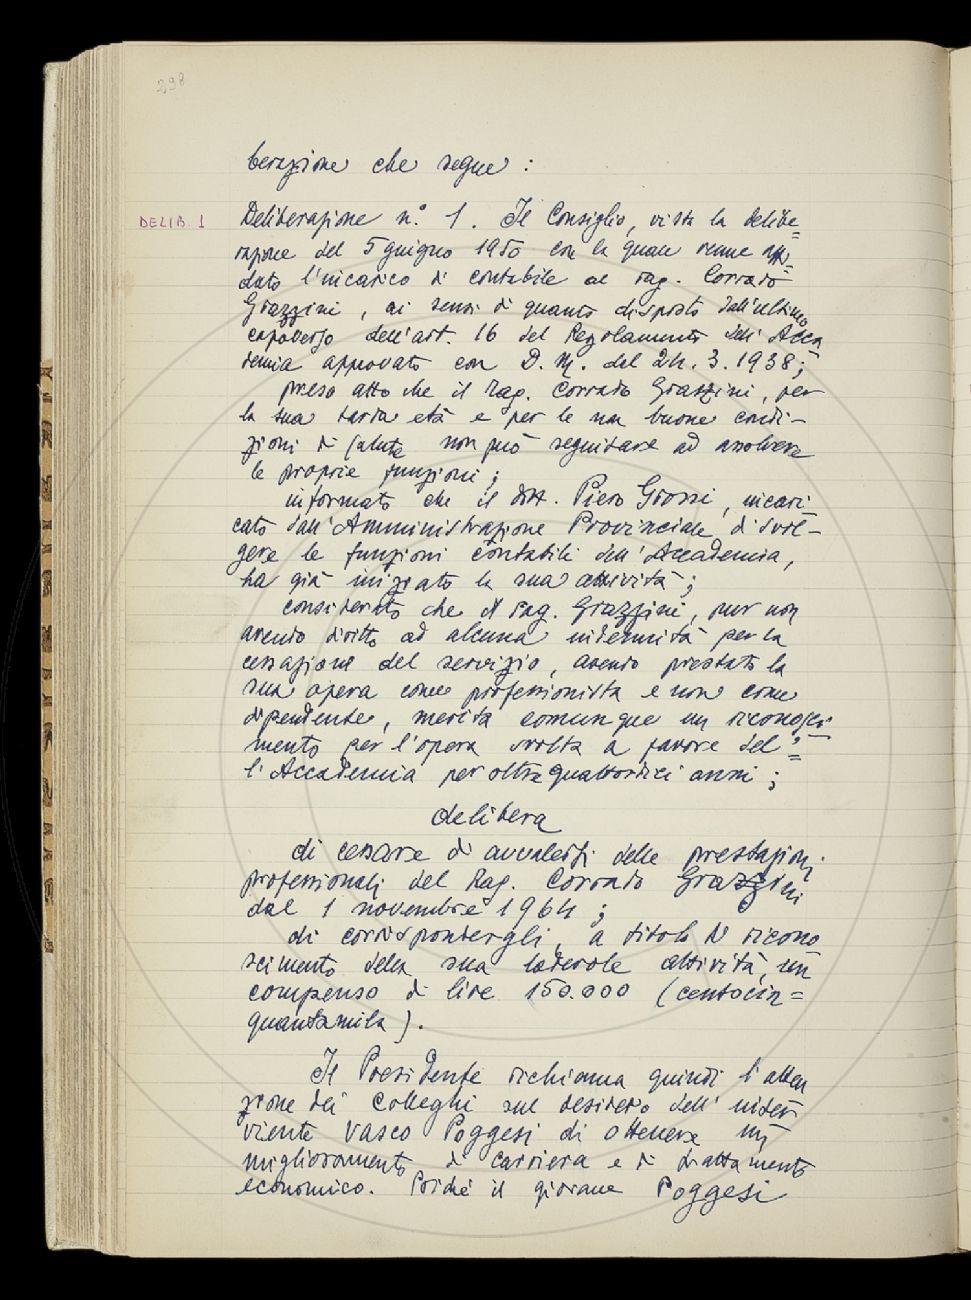 298
berazione che segue :
DELIB. 1
Deliberazione n.° 1. Il Consiglio, vista la delibe=
razione del 5 giugno 1950 con la quale venne affi=
dato l'incarico di contabile al rag. Corrado
Grazzini, ai sensi di quanto disposto dall'ultimo
capoverso dell'art. 16 del Regolamento dell'Acca
demia approvato con D. M. del 24. 3. 1938;
preso atto che il Rag. Corrado Grazzini, per
la sua tarda età e per le non buone condi-
zioni di salute non può seguitare ad assolvere
le proprie funzioni;
informato che il dott. Piero Grossi, incari
cato dall'Amministrazione Provinciale di svol-
gere le funzioni contabili dell'Accademia,
ha già iniziato la sua attività;
considerato che il rag. Grazzini, pur non
avendo diritto ad alcuna indennità per la
cessazione del servizio, avendo prestato la
sua opera come professionista e non come
dipendente, merita comunque un riconosci-
mento per l'opera svolta a favore del=
l'Accademia per oltre quattordici anni;
delibera
di cessare di avvalersi delle prestazioni
professionali del Rag. Corrado Grazzini
dal 1 novembre 1964;
di corrispondergli, a titolo di ricono
scimento della sua lodevole attività, un
compenso di lire 150.000 (centocin=
quantamila).
Il Presidente richiama quindi l'atten
zione dei Colleghi sul desiderio dell'inser
viente Vasco Poggesi di ottenere un
miglioramento di carriera e di trattamento
economico. Poiché il giovane Poggesi